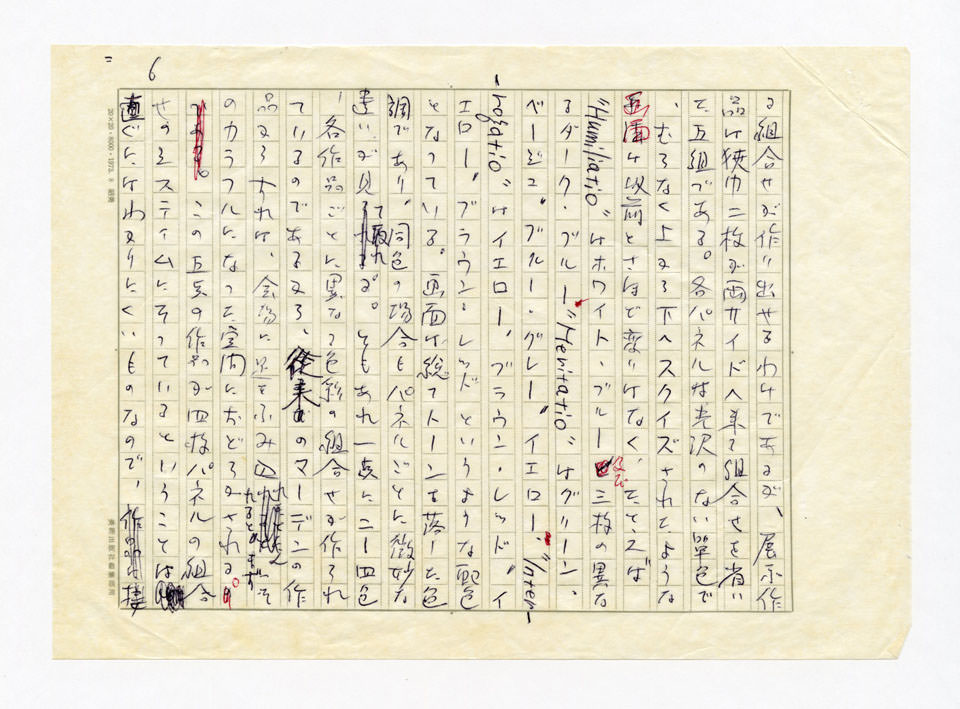 6
る組合せが作り出せるわけであるが、展示作
品は狭巾二枚が両サイドへ来て組合せを省い
た五組である。各パネルは光沢のない単色で
、むらなく上から下へスクイズされたような
画面は以前とさほど変りはなく、たとえば
"Humiliatio"はホワイト、ブルー及び三枚の異な
るダーク・ブルー、"Meritatio"はグリーン、
ベージュ、ブルー・グレー、イエロー、"Inter-
-rogatio"はイエロー、ブラウン・レッド、イ
エロー、ブラウン・レッドというような配色
となっている。画面は総てトーンを落した色
調であり、同色の場合もパネルごとに微妙な
違いが見て取れる。ともあれ一点に二ー四色
、各作品ごとに異なる色彩の組合せが作られ
ているのであるから、従来のマーデンの作
品からすれば、会場に足をふみ込れるとまずそ
のカラフルになった空間におどろかされる。
この五点の作品が四枚パネルの組合
せのシステムにそっているということは
直ぐにはわかりにくいものなので、接
20×20・8000・1972. 9